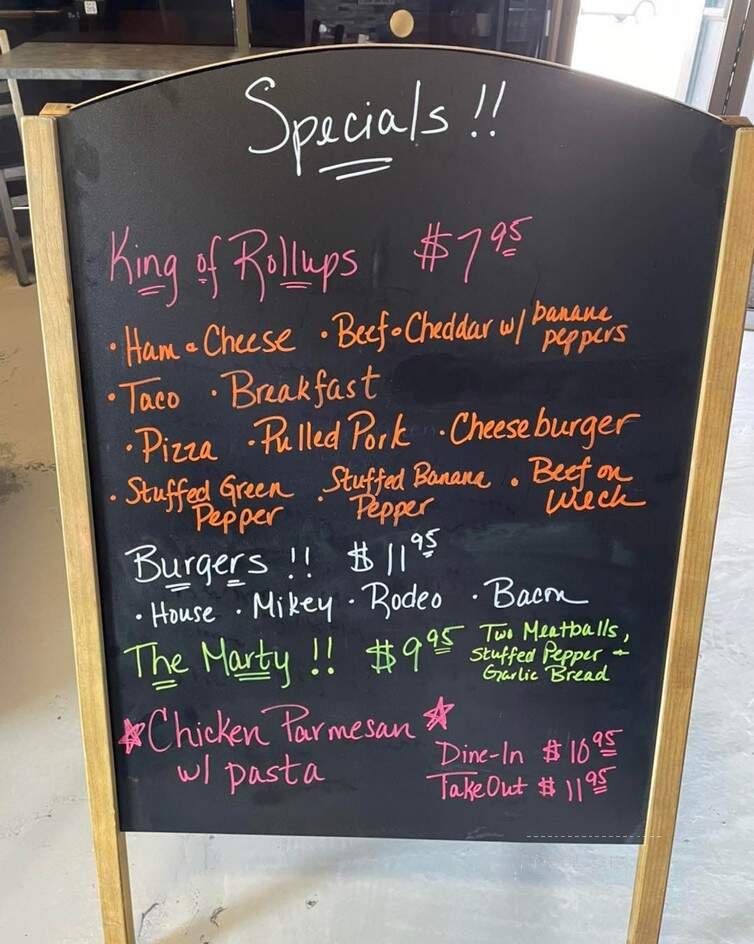 Specials !!
King of Rollups $7.95
• Ham & Cheese • Beef & Cheddar w/ banana peppers
• Taco • Breakfast
• Pizza • Pulled Pork • Cheeseburger
• Stuffed Green Pepper • Stuffed Banana Pepper • Beef on Weck
Burgers !! $11.95
• House • Mikey • Rodeo • Bacon
The Marty !! $9.95 Two Meatballs, Stuffed Pepper + Garlic Bread
☆Chicken Parmesan☆
w/ pasta
Dine-In $10.95
TakeOut $11.95